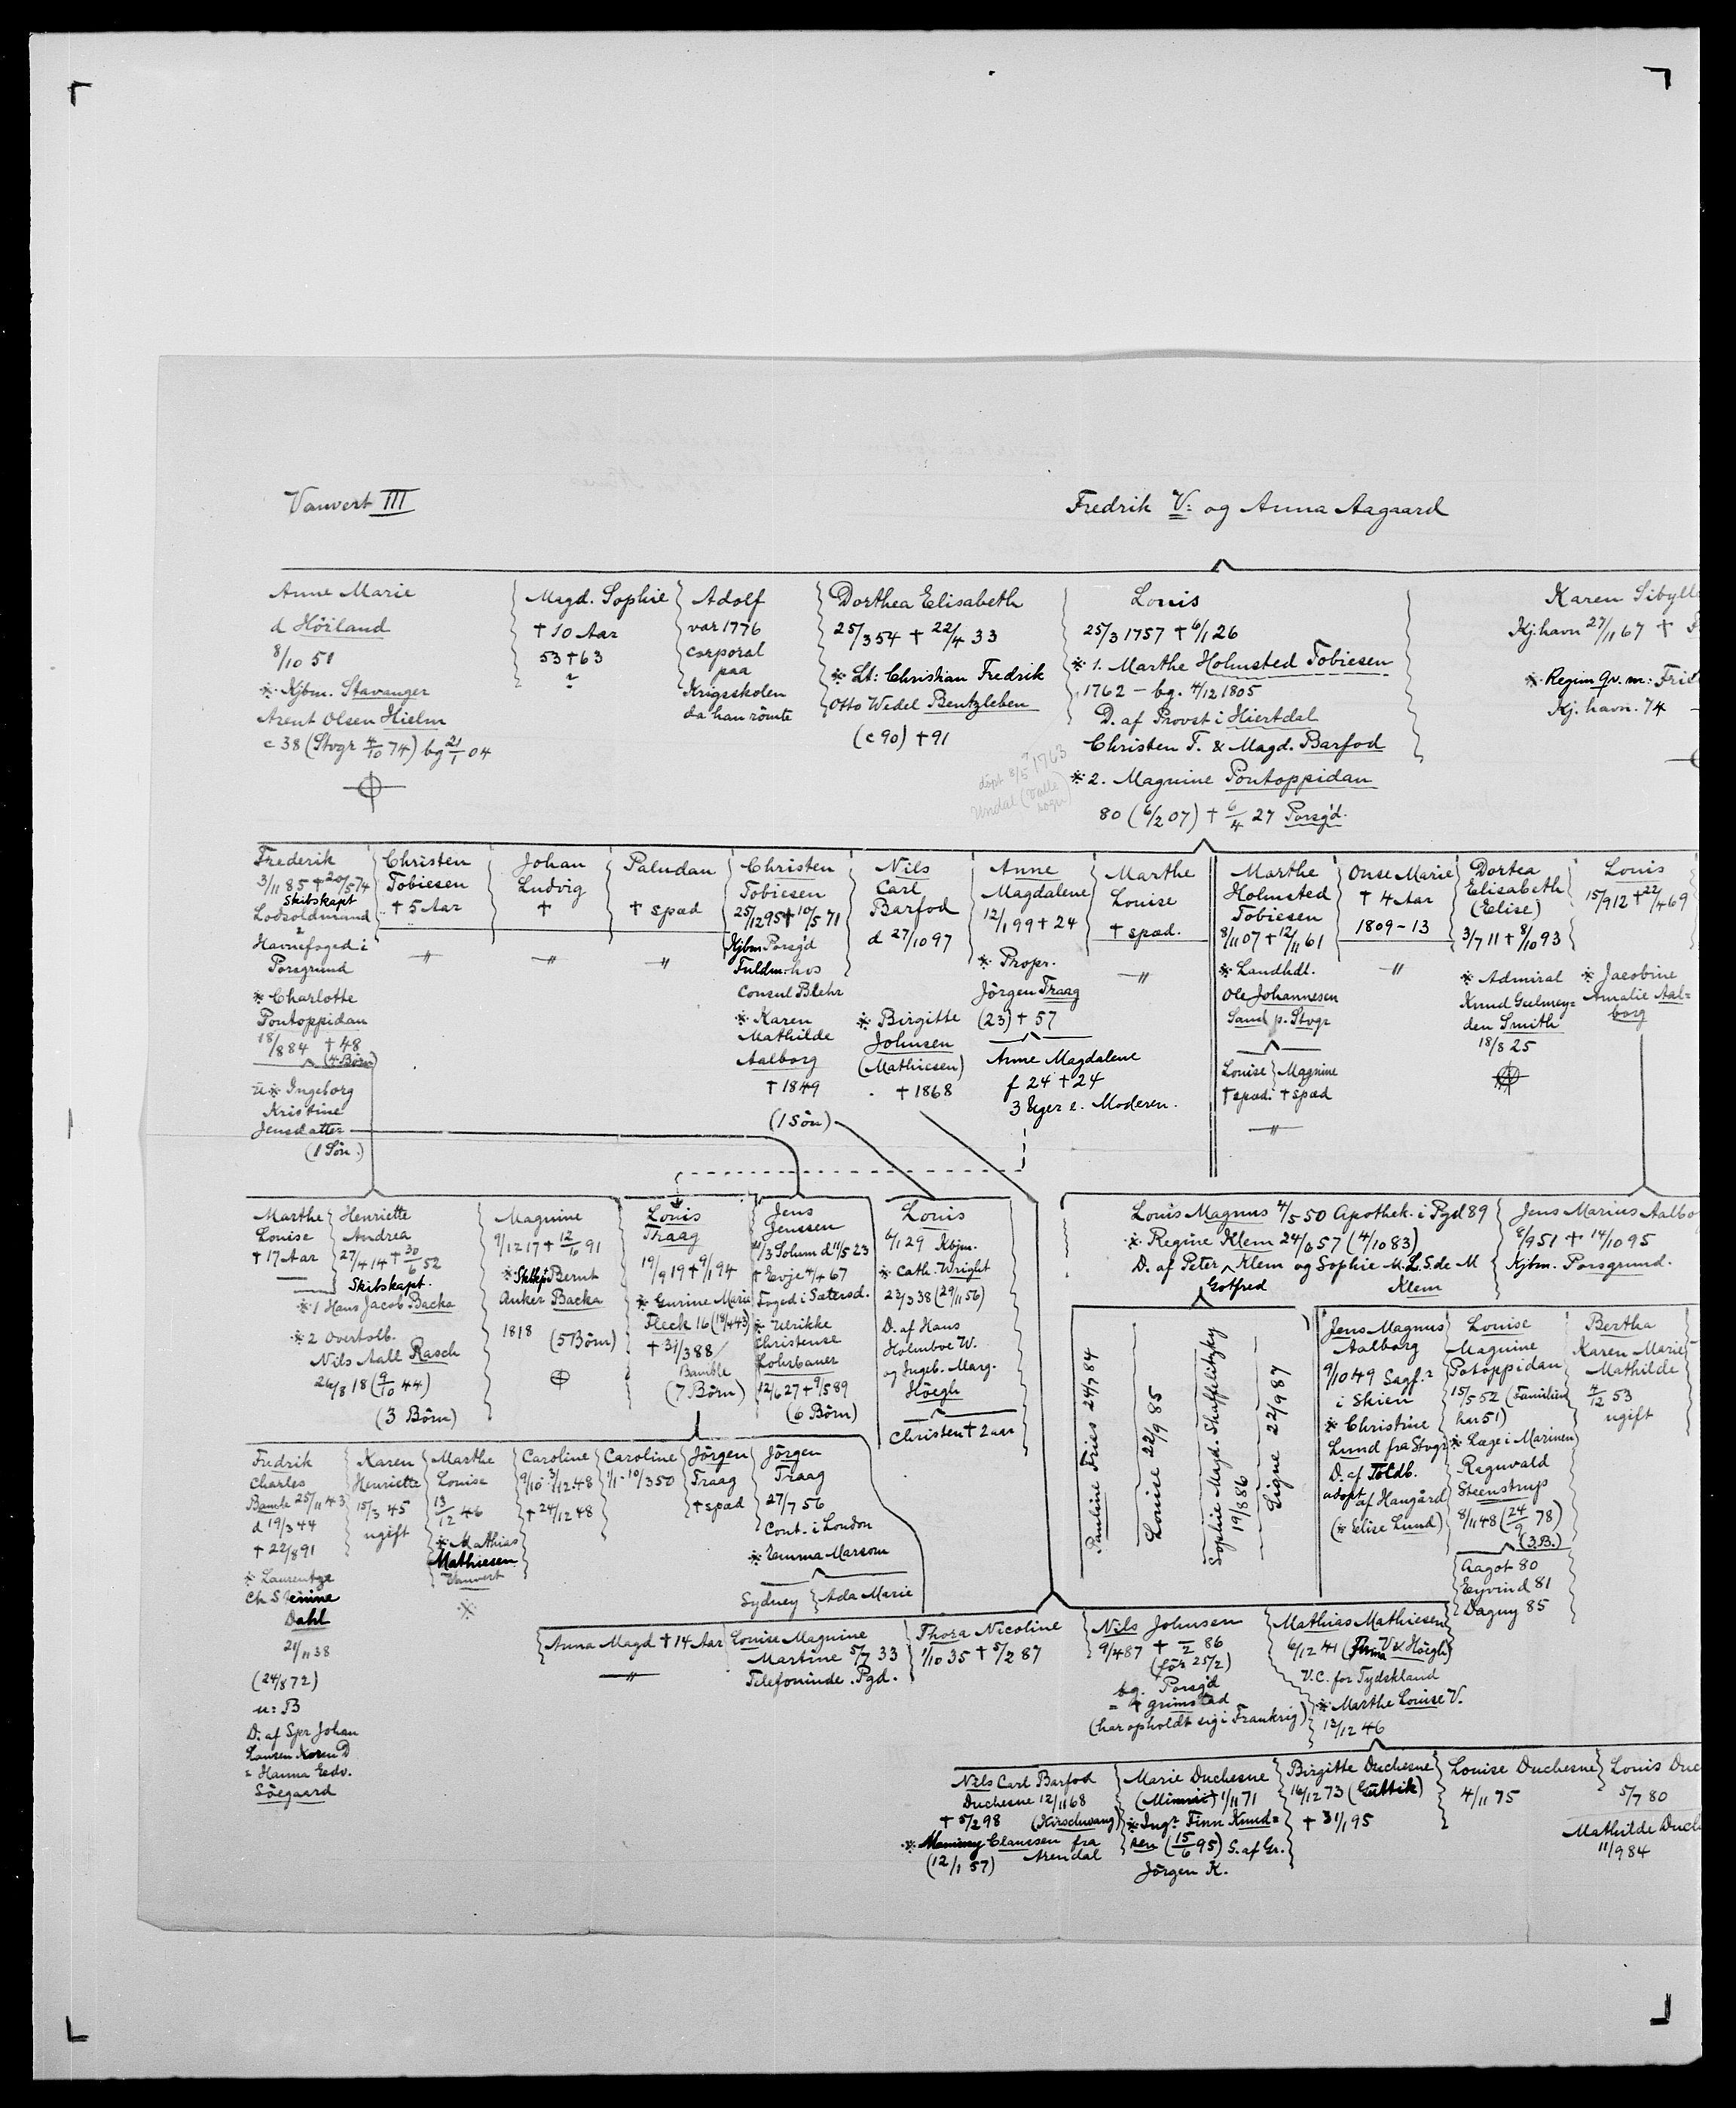 Vauvert III
Fredrik V: og Anna Aagaard
Anne Marie
d Höiland
8/10 51
※ Kjbm. Stavanger
Arent Olsen Hielm
c 38 (Stvgr 4/10 74) bg 21/1 04
Magd. Sophie
† 10 Aar
53 † 63
Adolf
var 1776
corporal
paa
Krigsskolen
da han römte
Dorthea Elisabeth
25/3 54 † 22/4 33
※ Lt: Christian Fredrik
Otto Wedel Bentzleben
(c 90) † 91
Louis
25/3 1757 † 6/1 26
※ 1. Marthe Holmsted Tobiesen
1762 – bg. 4/12 1805
D. af Provst i Hiertdal
Christen T. & Magd. Barfod
döpt 8/5 1763
Undal (Valle
sogn)
※ 2. Magnine Pontoppidan
80 (6/2 07) † 6/4 27 Porsg'd.
Karen Sibyll
Kj.havn 27/11 67 †
※ Regim Qv. m: Frid
Kj. havn. 74 –
Frederik
3/11 85 † 20/5 74
Skibskapt
Lodsoldmand
Havnefoged i
Porsgrund
※ Charlotte
Pontoppidan
18/8 84 † 48
(4 Börn)
※ Ingeborg
Kristine
Jensdatter
(1 Sön.)
Christen
Tobiesen
† 5 Aar
–"–
Johan
Ludvig
†
–"–
Paludan
† spæd
–"–
Christen
Tobiesen
25/12 95 † 10/5 71
Kjbm Porsg'd
Fuldm: hos
Consul Blehr
※ Karen
Mathilde
Aalborg
† 1849
(1 Sön)
Nils
Carl
Barfod
d 27/10 97
※ Birgitte
Johnsen
(Mathiesen)
† 1868
Anne
Magdalene
12/1 99 † 24
※ Propr.
Jörgen Traag
(23) † 57
Anne Magdalene
f 24 † 24
3 Uger e. Moderen.
Marthe
Louise
† spæd.
–"–
Marthe
Holmsted
Tobiesen
8/11 07 † 12/11 61
※ Landhdl.
Ole Johannesen
Sand p. Stvgr
Louise Magnine
† spæd. † spæd
–"–
Onse Marie
† 4 Aar
1809–13
–"–
Dortea
Elisabeth
(Elise)
3/7 11 † 8/10 93
※ Admiral
Knud Geelmey=
den Smith
18/8 25
Louis
15/9 12 † 22/4 69
※ Jacobine
Amalie Aal=
borg
Marthe
Louise
† 17 Aar
Henriette
Andrea
27/4 14 † 30/6 52
Skibskapt.
※ 1 Hans Jacob Backa
※ 2 Overtolb.
Nils Aall Rasch
26/8 18 (9/10 44)
(3 Börn)
Magnine
9/12 17 † 12/6 91
※ Skbkpt Bernt
Anker Backa
1818 (5 Börn)
Louis
Traag
19/9 19 † 9/1 94
※ Gurine Marie
Fleck 16 (18/4 43)
† 31/3 88
Bamble
(7 Börn)
Jens
Jenssen
/3 Solum d 11/5 23
† Evje 4/4 67
Foged i Sætersd.
※ Ulrikke
Christense
Lohrbauer
12/6 27 † 9/5 89
(6 Börn)
Louis
6/1 29 Kbjm.
※ Cath. Wright
23/3 38 (29/11 56)
D. af Hans
Holmboe W.
og Ingeb. Marg.
Höegh
Christen † 2 aar
Louis Magnus 4/5 50 Apothek. i Pgd 89
※ Regine Klem 24/6 57 (4/10 83)
D. af Peter Klem og Sophie M. L. S. de M
Gotfred Klem
Jens Marius Aalbo
8/9 51 † 14/10 95
Kjbm. Porsgrund.
Pauline Fries 24/7 84
Louise 22/9 85
Sophie Magd. Shaffelitzky
19/8 86
Signe 22/9 87
Jens Magnus
Aalborg
9/10 49 Sagf.r
i Skien
※ Christine
Lund fra Stvgr
D. af Toldb.
adopt af Haugård
(※ Elise Lund)
Louise
Magnine
Potoppidan
15/5 52 (Familien
har 51)
※ Læge i Marinen
Regnvald
Steenstrup
8/11 48 (24/9 78)
(3 B.)
Aagot 80
Eyvind 81
Dagny 85
Bertha
Karen Marie
Mathilde
4/12 53
ugift
Fredrik
Charles
Bamle 25/11 43
d 19/3 44
† 22/8 91
※ Laurentze
Ch Stenine
Dahl
21/11 38
(24/8 72)
u: B
D. af Spr Johan
Lausen Karen D
= Hanna Eedv.
Söegaard
Karen
Henriette
15/3 45
ugift
Marthe
Louise
13/12 46
※ Mathias
Mathiesen
Vauvert
※
Caroline
9/10 3/12 48
† 24/12 48
Caroline
1/1 - 10/3 50
Jörgen
Traag
† spæd
Jörgen
Traag
27/7 56
Cont. i London
※ Emma Marsom
Sydney Ada Marie
Anna Magd † 14 Aar
–"–
Louise Magnine
Martine 5/7 33
Telefoninde. Pgd.
Thora Nicoline
1/10 35 † 5/2 87
Nils Johnsen
9/4 87 † –/2 86
(för 25/2)
bg. Porsg'd
= † grimstad
(har opholdt sig i Frankrig)
Mathias Mathiesen
6/12 41 (Firma V & Höegh)
V.C. for Tydskland
※ Marthe Louise V.
13/12 46
Nils Carl Barfod
Duchesne 12/11 68
† 5/2 98 (Kirschwang)
※ Clausen fra
(12/1 57) Arendal
Marie Duchesne
(Minnie) 1/11 71
※ Ingr Finn Knud=
sen (15/6 95) S. af Gr.
Jörgen K.
Birgitte Duchesne
16/12 73 (Gittik)
† 31/1 95
Louise Duchesne
4/11 75
Louis Duc
5/7 80
Mathilde Duch
11/9 84